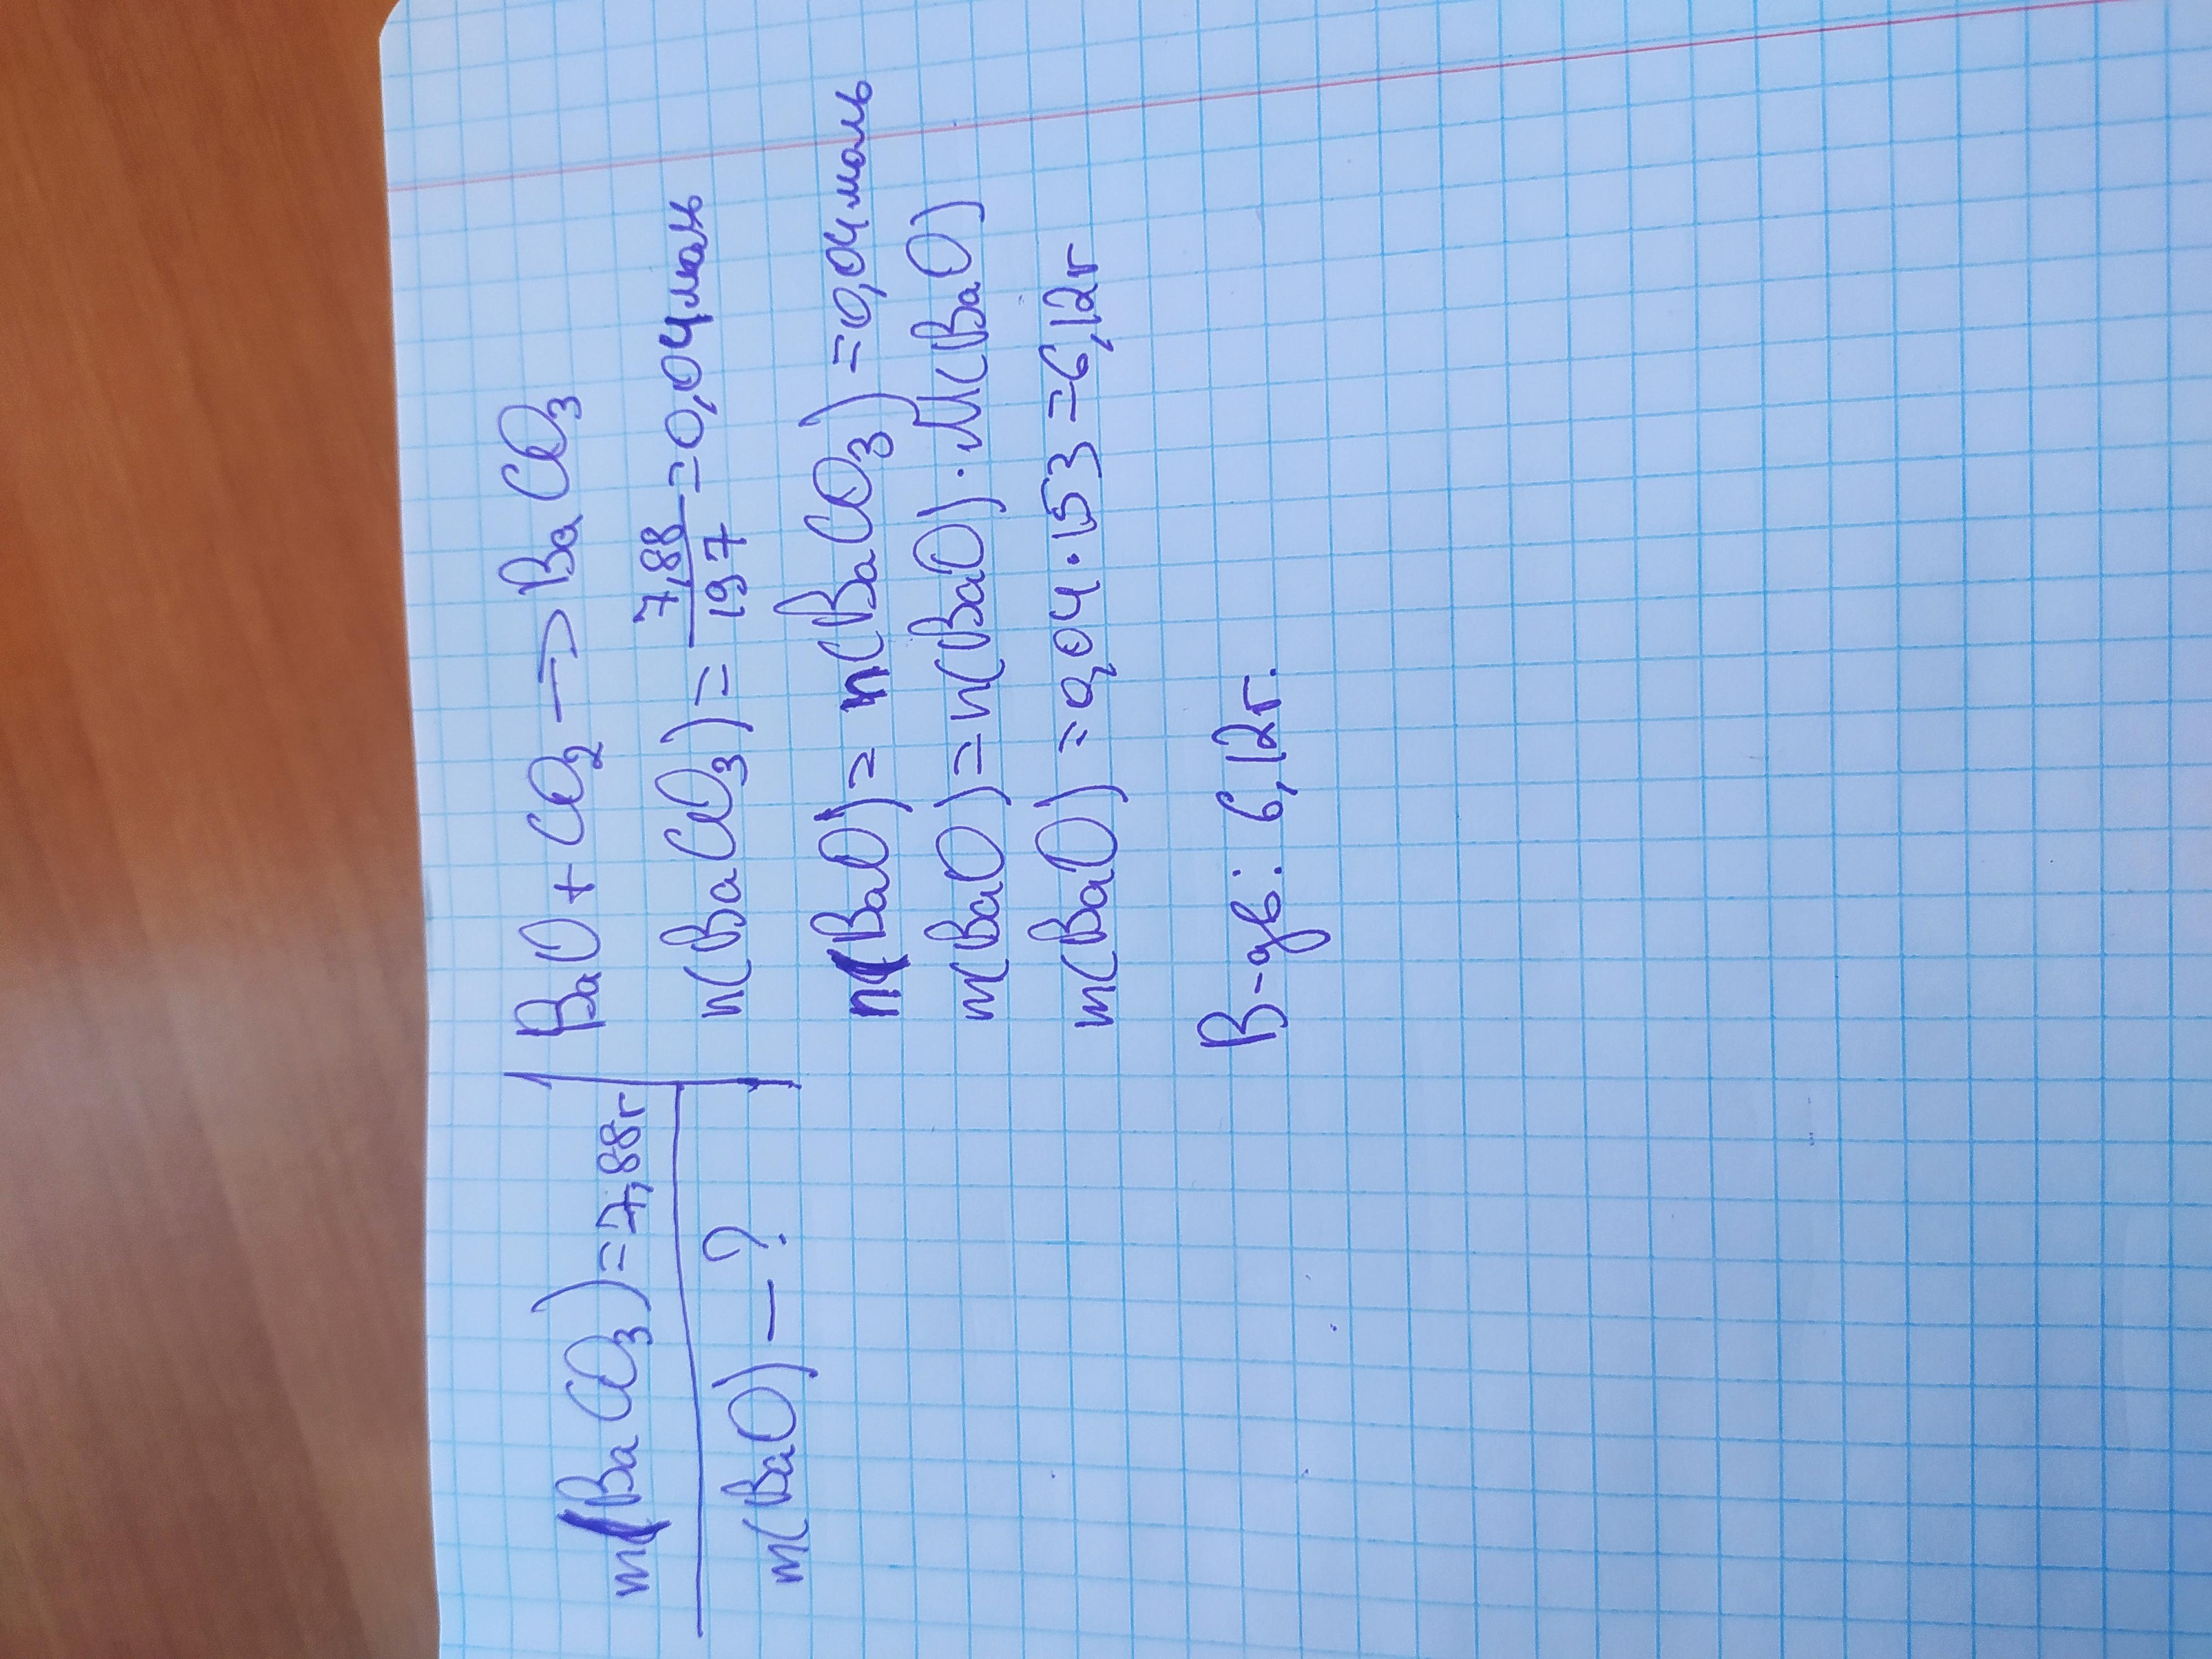 m(BaCO₃)=7,88г
m(BaO) – ?
BaO + CO₂ → BaCO₃
n(BaCO₃) = 7,88/197 = 0,04моль
n(BaO) = n(BaCO₃) = 0,04моль
m(BaO) = n(BaO) · M(BaO)
m(BaO) = 0,04 · 153 = 6,12г
В-дь: 6,12г.